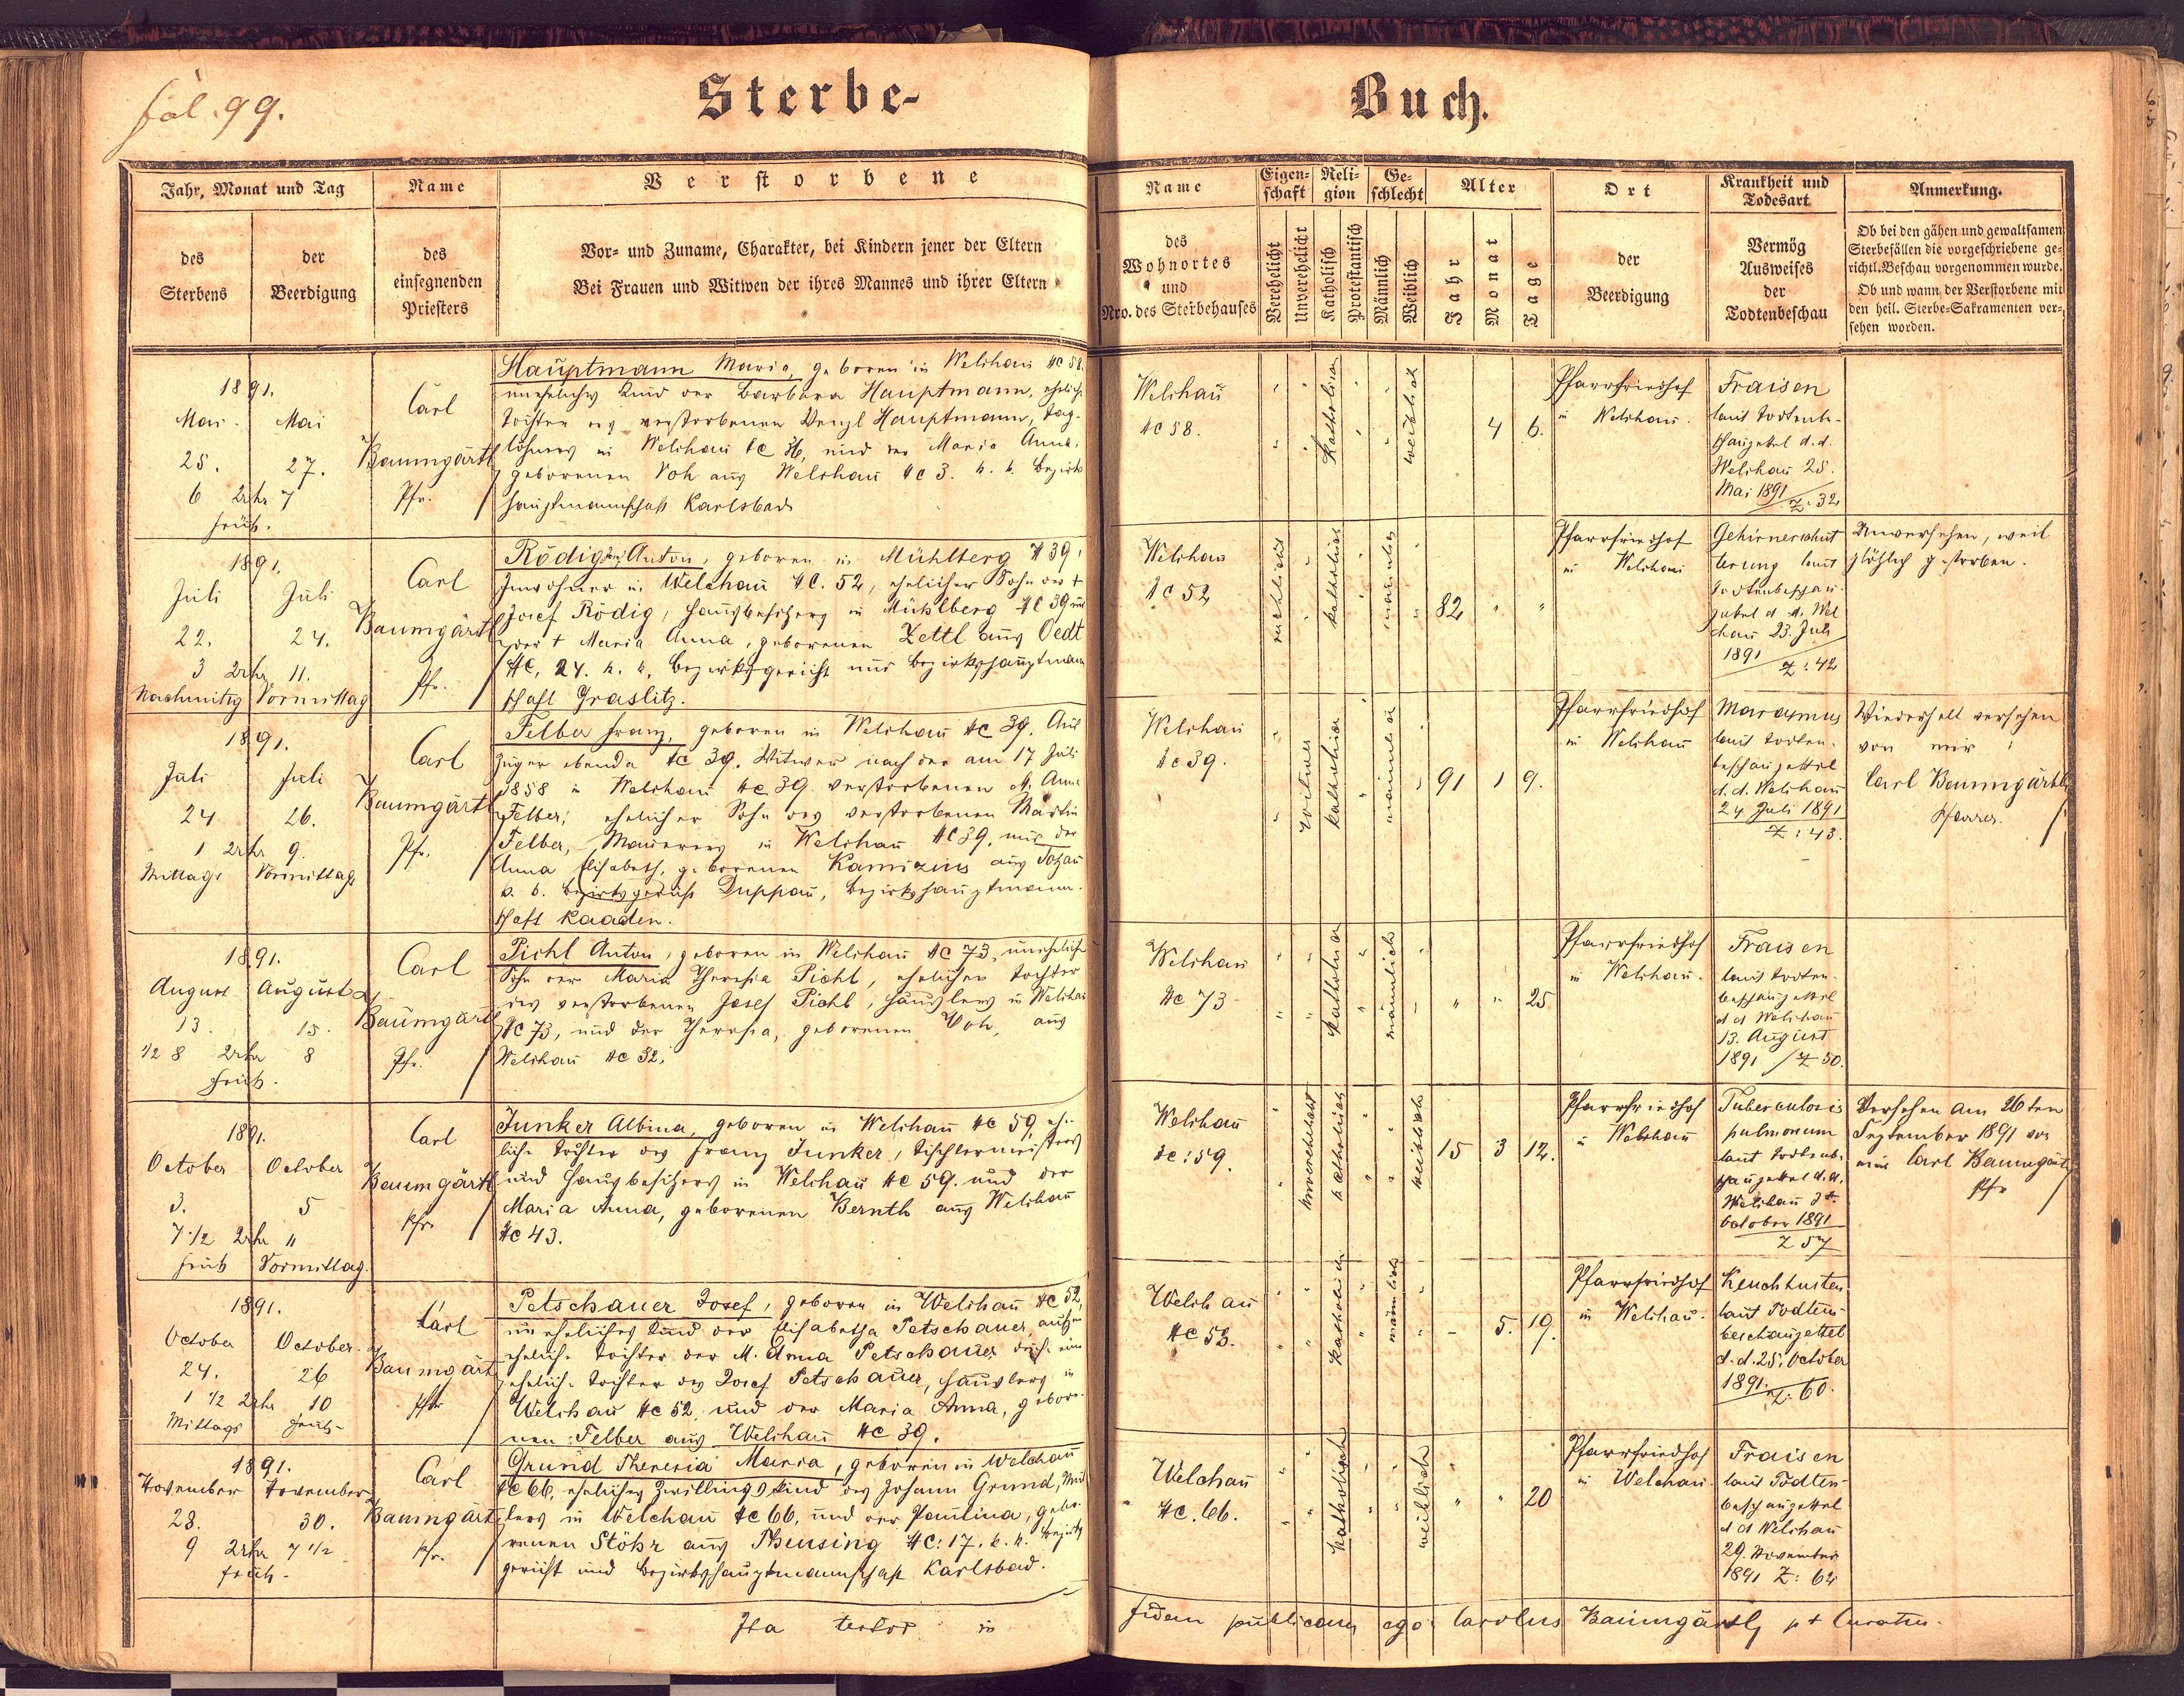 fol. 99.
Sterbe-
Buch.
Jahr, Monat und Tag
des
Sterbens
der
Beerdigung
Name
des
einsegnenden
Priesters
Verstorbene
Vor- und Zuname, Charakter, bei Kindern jener der Eltern
Bei Frauen und Witwen der ihres Mannes und ihrer Eltern
Name
des
Wohnortes
und
Nro. des Sterbehauses
Eigen-
schaft
Verehelicht
Unverehelicht
Reli-
gion
Katholisch
Protestantisch
Ge-
schlecht
Männlich
Weiblich
Alter
Jahr
Monat
Tage
Ort
der
Beerdigung
Krankheit und
Todesart
Vermög
Ausweises
der
Todtenbeschau
Anmerkung.
Ob bei den gähen und gewaltsamen
Sterbefällen die vorgeschriebene ge-
richtl. Beschau vorgenommen wurde.
Ob und wann der Verstorbene mit
den heil. Sterbe-Sakramenten ver-
sehen worden.
1891.
Mai. Mai
25. 27.
6 Uhr 7
früh.
Carl
Baumgärtl
Pfr.
Hauptmann Maria, geboren in Welchau NC 58
uneheliches Kind der Barbara Hauptmann, ehelich
Tochter des verstorbenen Wenzl Hauptmann, Tag-
löhners in Welchau NC 36, und der Maria Anna
geborenen Voh aus Welchau NC 3. k. k. Bezirks
hauptmannschaft Karlsbad
Welchau
NC 58.
katholisch
weiblich
4 6.
Pfarrfriedhof
in Welchau.
Fraisen
laut Todtenb-
schauzettel d. d.
Welchau 25.
Mai 1891
Z: 32
1891.
Juli Juli
22. 24.
3 Uhr 11.
Nachmittg Vormittag
Carl
Baumgärtl
Pfr.
Rödig Anton, geboren in Mühlberg N 39,
Inwohner in Welchau NC. 52, ehelicher Sohn des +
Josef Rödig, Hausbesitzers in Mühlberg NC 39 und
der + Maria Anna, geborenen Zettl aus Oedt
NC, 24. k. k. Bezirksgericht und Bezirkshauptmann
schaft Graslitz.
Welchau
NC 52
verehelicht
katholisch
männlich
82 " "
Pfarrfriedhof
in Welchau
Gehirnerschüt
terung laut
Todtenbeschau-
zettel d. d. Wel
chau 23. Juli
1891
Z: 42
Unversehen, weil
plötzlich gestorben.
1891.
Juli Juli
24 26.
1 Uhr 9.
Mittags Vormittags
Carl
Baumgärtl
Pfr.
Felber Franz, geboren in Welchau NC 39. Aus
züger ebenda NC 39. Witwer nach der am 17 Juli
1858 in Welchau NC 39. verstorbenen M. Anna
Felber; ehelicher Sohn des verstorbenen Martin
Felber, Maurers in Welchau NC 39. und der
Anna Elisabeth, geborenen Kamizius aus Totzau
k. k. Bezirksgericht Duppau, Bezirkshauptmann-
schaft Kaaden.
Welchau
NC 39.
Witwer
katholisch
männlich
91 1 9.
Pfarrfriedhof
in Welchau
Marasmus
laut Todten-
beschauzettel
d. d. Welchau
24 Juli 1891
Z: 43.
Wiederholt versehen
von mir
Carl Baumgärtl
Pfarrer.
1891.
August August
13. 15.
1/2 8 Uhr 8
früh.
Carl
Baumgärtl
Pfr.
Pichl Anton, geboren in Welchau NC 73, unehelich
Sohn der Maria Theresia Pichl, ehelichen Tochter
des verstorbenen Josef Pichl, Häuslers in Welchau
NC 73, und der Theresia, geborenen Voh, aus
Welchau NC 32.
Welchau
NC 73
katholisch
männlich
" " 25
Pfarrfriedhof
in Welchau.
Fraisen
laut Todten-
beschauzettel
d d Welchau
13. August
1891 / Z 50.
1891.
October October
3. 5
7 1/2 Uhr 11
früh Vormittag.
Carl
Baumgärtl
Pfr.
Junker Albina, geboren in Welchau NC 59, ehe-
liche Tochter des Franz Junker, Tischlermeisters
und Hausbesitzers in Welchau NC 59. und der
Maria Anna, geborenen Bernth aus Welchau
NC 43.
Welchau
NC: 59.
unverehelicht
katholisch
weiblich
15 3 12.
Pfarrfriedhof
in Welchau
Tuberculosis
pulmonum
laut Todtenbe-
schauzettel d. d.
Welchau 3t
October 1891
Z 57
Versehen am 26ten
September 1891 von
mir Carl Baumgärtl
Pfr
1891.
October October.
24. 26
1 1/2 Uhr 10
Mittags früh-
Carl
Baumgärtl
Pfr
Petschauer Josef, geboren in Welchau NC 52,
uneheliches Kind der Elisabetha Petschauer, außer
eheliche Tochter der M. Anna Petschauer,
eheliche Tochter des Josef Petschauer, Häuslers in
Welchau NC 52 und der Maria Anna, gebore-
nen Felber aus Welchau NC 39.
Welchau
NC 53.
katholisch
männlich
- 5. 19.
Pfarrfriedhof
in Welchau.
Keuchhusten
laut Todten-
beschauzettel
d. d. 25. October
1891.
Z: 60.
1891.
November November
28. 30.
9 Uhr 7 1/2
früh-
Carl
Baumgärtl
Pfr.
Grund Theresia Maria, geboren in Welchau
NC 66, eheliches Zwillingskind des Johann Grund,
in Welchau NC 66, und der Paulina, gebo-
renen Stöhr aus Theusing NC: 17. k. k. Bezirks
gericht und Bezirkshauptmannschaft Karlsbad.
Welchau
NC. 66.
katholisch
weiblich
" " 20
Pfarrfriedhof
in Welchau.
Fraisen
laut Todten-
beschauzettel
d d Welchau
29. November
1891 Z: 64
Ita testor in
fidem publicam ego Carolus Baumgärtl, p t Curatus.